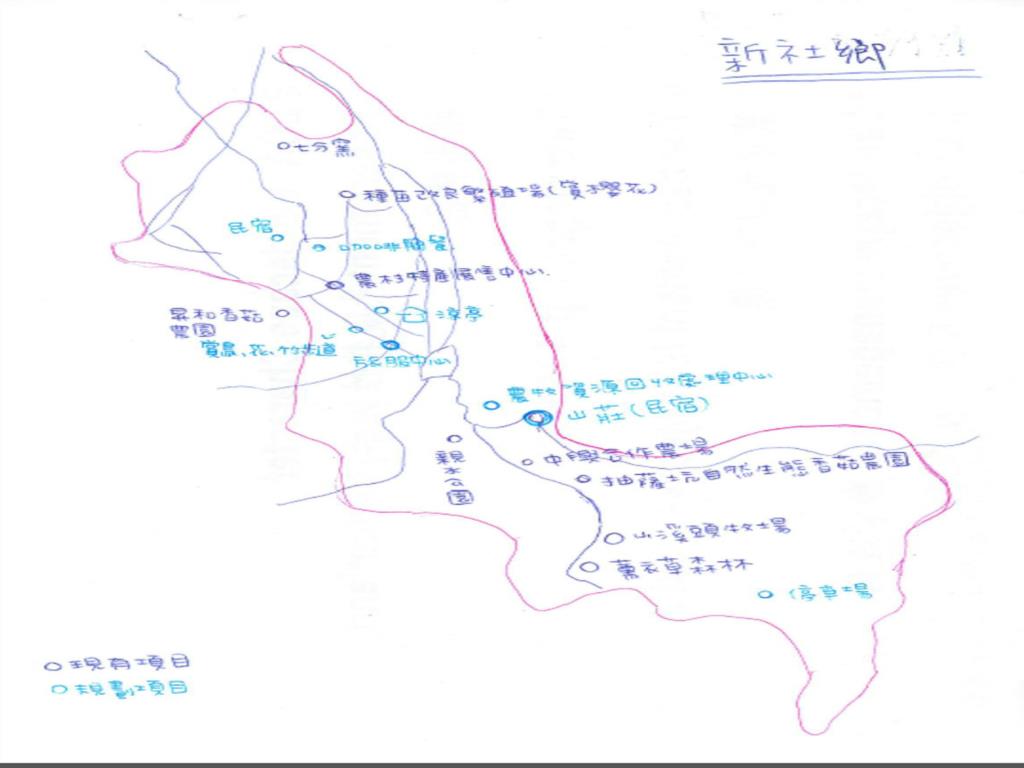 新社鄉
七分窯
種苗改良繁殖場(賞櫻花)
民宿
咖啡簡餐
農村特產展售中心.
昇和香菇
農園
涼亭
賞鳥、花、竹步道
旅服中心
農牧資源回收處理中心
山莊(民宿)
中興合作農場
親水公園
抽藤坑自然生態香菇農園
山溪頭牧場
薰衣草森林
停車場
現有項目
規劃項目